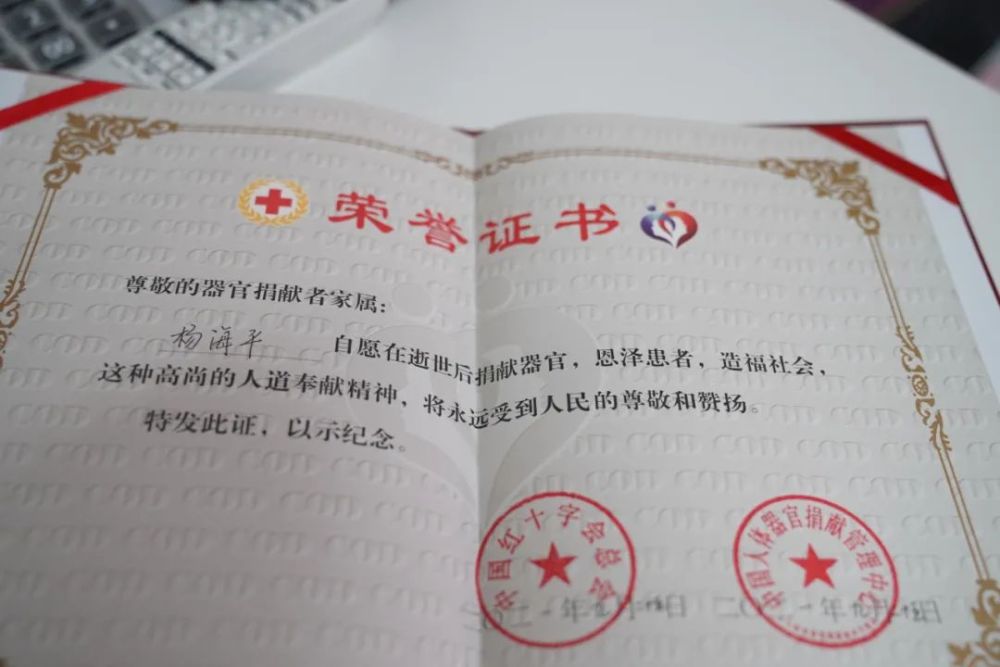 荣誉证书
尊敬的器官捐献者家属：
杨海平 自愿在逝世后捐献器官，恩泽患者，造福社会，
这种高尚的人道奉献精神，将永远受到人民的尊敬和赞扬。
特发此证，以示纪念。
中国红十字会总会
中国人体器官捐献管理中心
年九月 日 二〇二一年九月 日